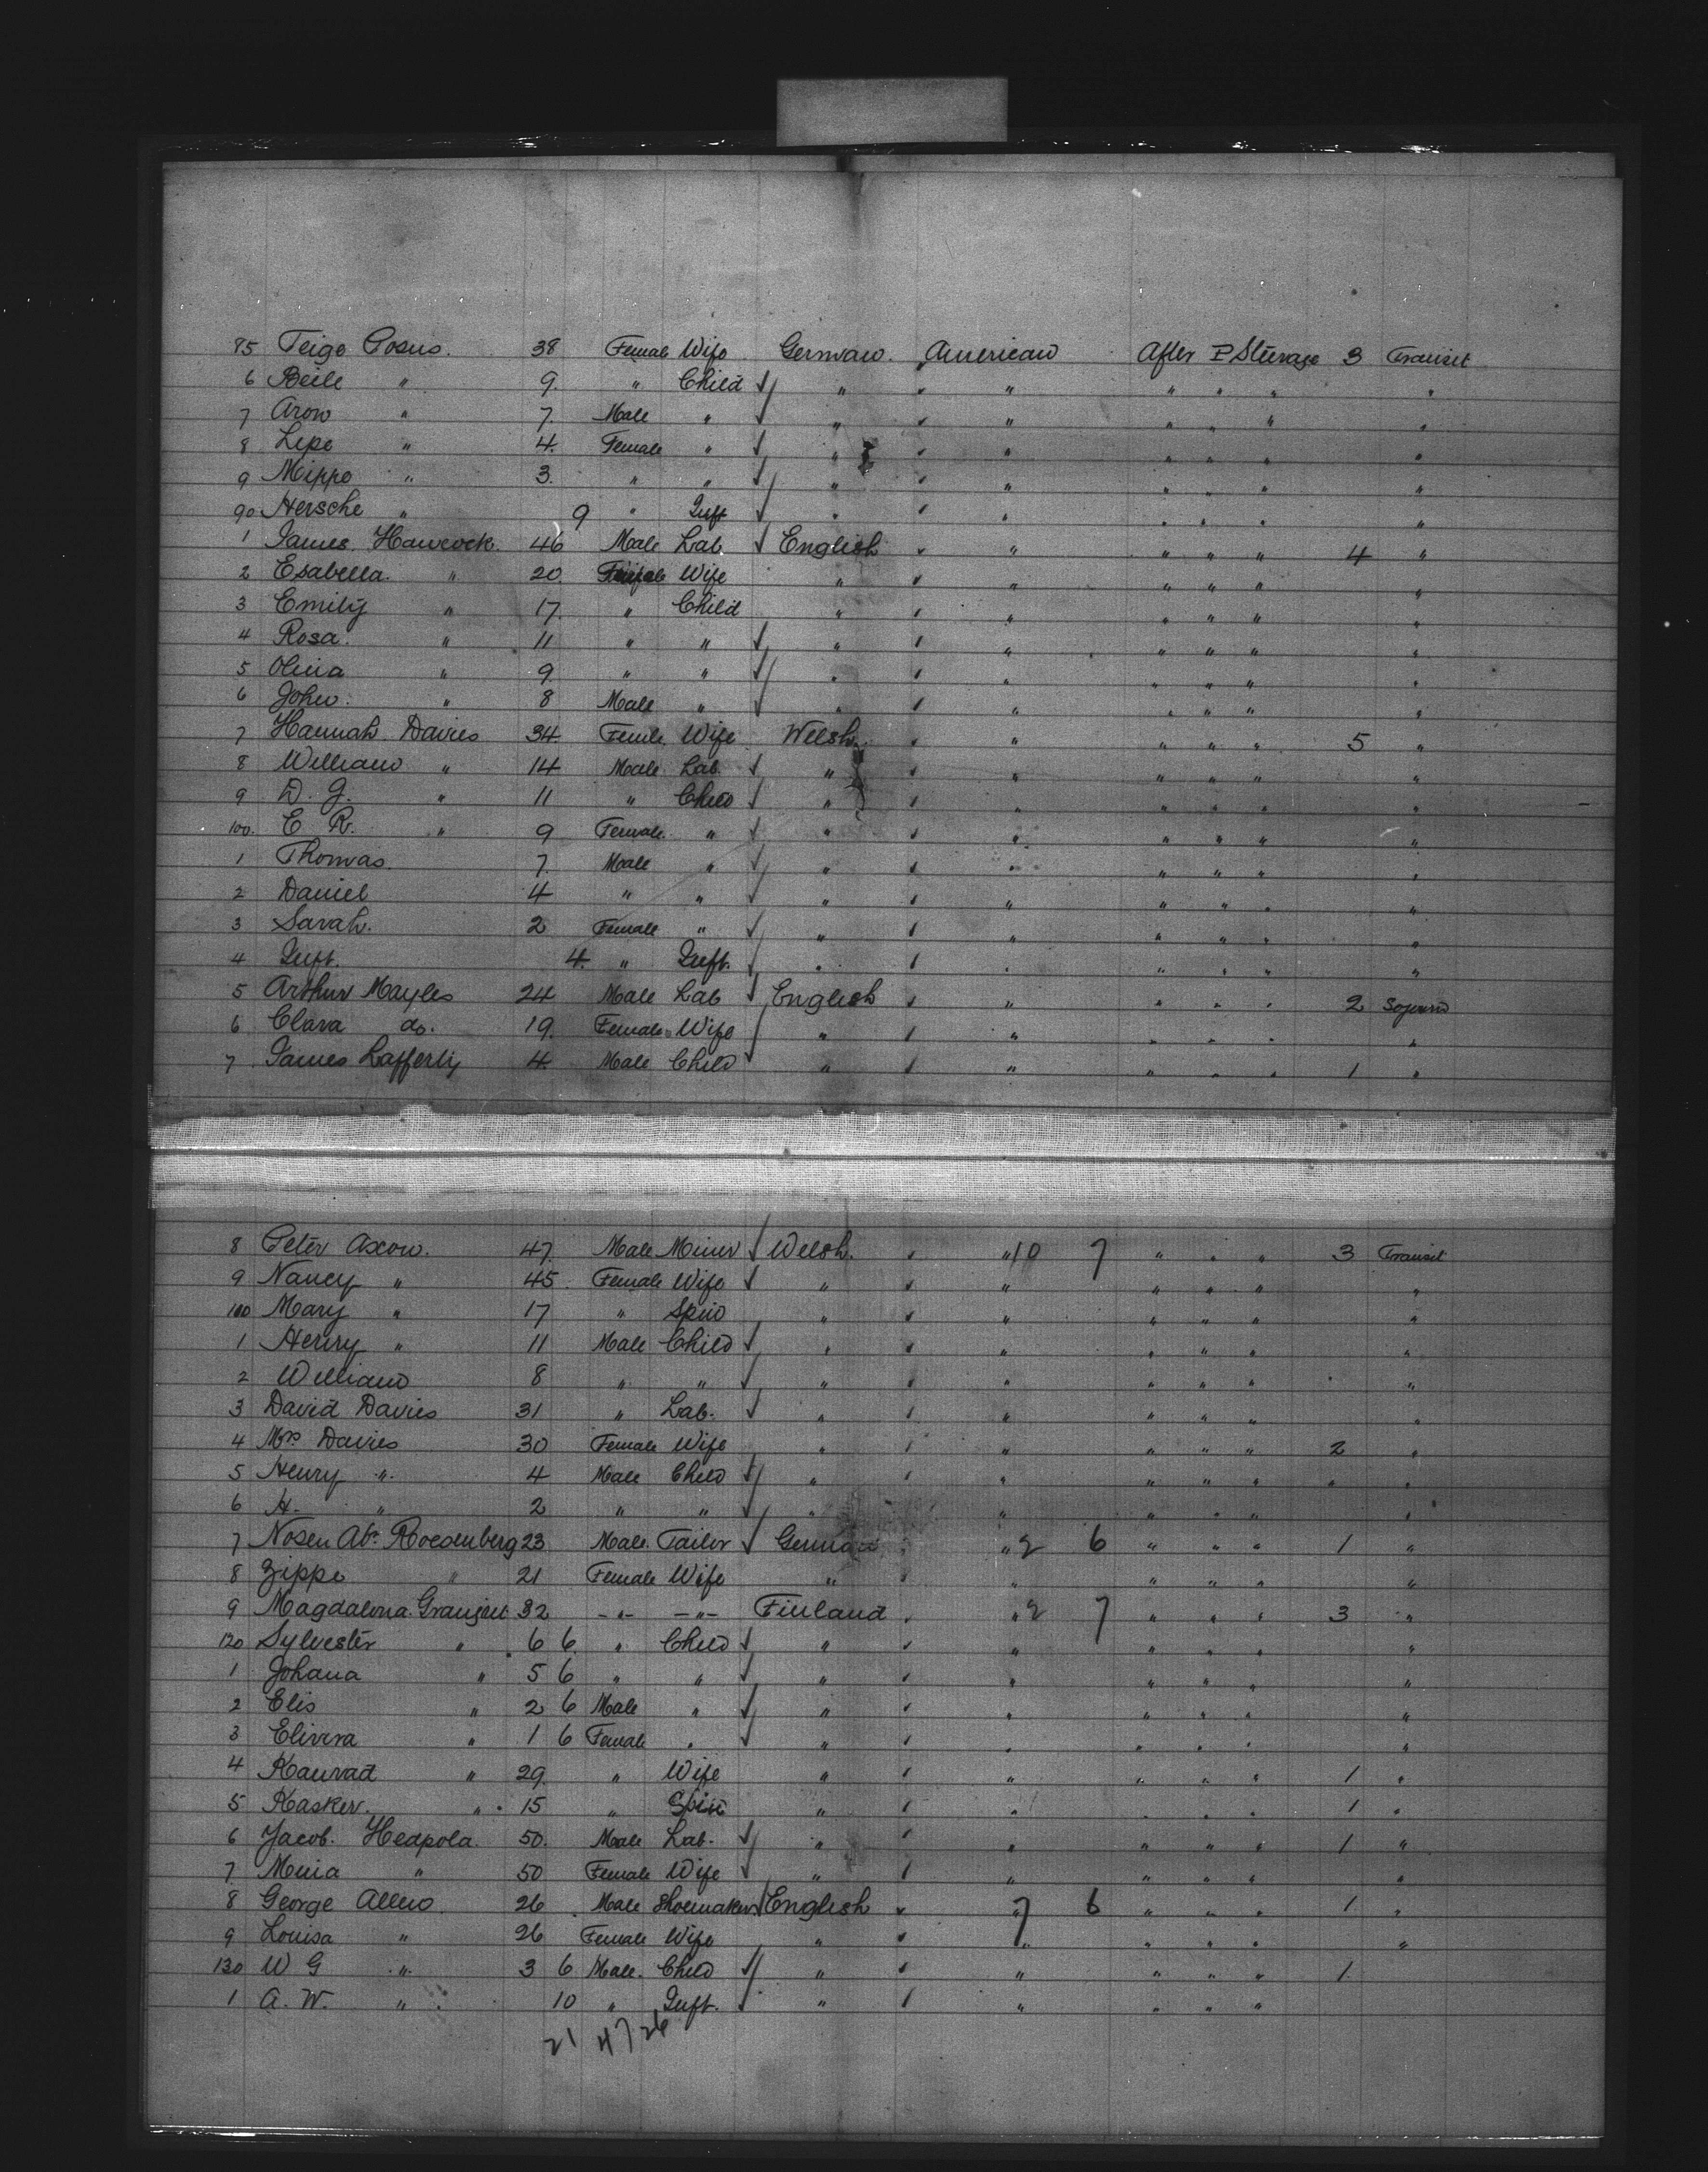 85 Teige Posus. 38 Female Wife German. " American After P Steerage 3 Transit
6 Beile " 9. " Child " " " " " " "
7 Aron " 7. Male " " " " " " " "
8 Lepe " 4. Female " " " " " " " "
9 Mippe " 3. " " " " " " " " "
90 Hersche " 9 " Inft " " " " " " "
1 James Hawcock. 46 Male Lab English " " " " " 4 "
2 Esabella. " 20 Female Wife " " " " " " "
3 Emily " 17. " Child " " " " " " "
4 Rosa. " 11 " " " " " " " " "
5 Olivia " 9. " " " " " " " " "
6 John. " 8 Male " " " " " " " "
7 Hannah Davies 34 Female Wife Welsh. " " " " " 5 "
8 William " 14 Male Lab. " " " " " " "
9 D. J. " 11 " Child " " " " " " "
100. E R. " 9 Female. " " " " " " " "
1 Thomas. 7. Male " " " " " " " "
2 Daniel 4 " " " " " " " " "
3 Sarah. 2 Female " " " " " " " "
4 Inft. 4. " Inft. " " " " " " "
5 Arthur Mayles 24 Male Lab English " " " " " 2 Sojourn
6 Clara do. 19. Female Wife " " " " " " "
7 James Lafferty 4 Male Child " " " " " " 1 "
8 Peter Axon. 47. Male Miner Welsh. " " 10 7 " " " 3 Transit
9 Nancy " 45. Female Wife " " " " " " "
110 Mary " 17 " Spin " " " " " " "
1 Henry " 11 Male Child " " " " " " "
2 William 8 " " " " " " " " "
3 David Davies 31 " Lab. " " " " " " "
4 Mrs Davies 30 Female Wife " " " " " " 2 "
5 Henry " 4 Male Child " " " " " " " "
6 H. " 2 " " " " " " " " "
7 Nosen Abr. Roesenberg 23 Male. Tailor German " " 2 6 " " " 1 "
8 Zippe " 21 Female Wife " " " " " " "
9 Magdalena 32 -"- -"- Finland " " 2 7 " " " 3 "
120 Sylvester " 6 6 " Child " " " " " " "
1 Johana " 5 6 " " " " " " " " "
2 Elis " 2 6 Male " " " " " " " "
3 Elivira " 1 6 Female " " " " " " " "
4 Kanrad " 29. " Wife " " " " " " 1 "
5 Kasker. " 15 " Spin " " " " " " 1 "
6 Jacob. Heapola. 50. Male Lab. " " " " " " 1 "
7 Mina " 50 Female Wife " " " " " " "
8 George Allen. 26 Male Shoemaker English " " 7 6 " " " 1 "
9 Louisa " 26 Female Wife " " " " " " "
130 W G " 3 6 Male. Child " " " " " " 1
1 A. W. " 10 " Inft. " " " " " "
21 47 26